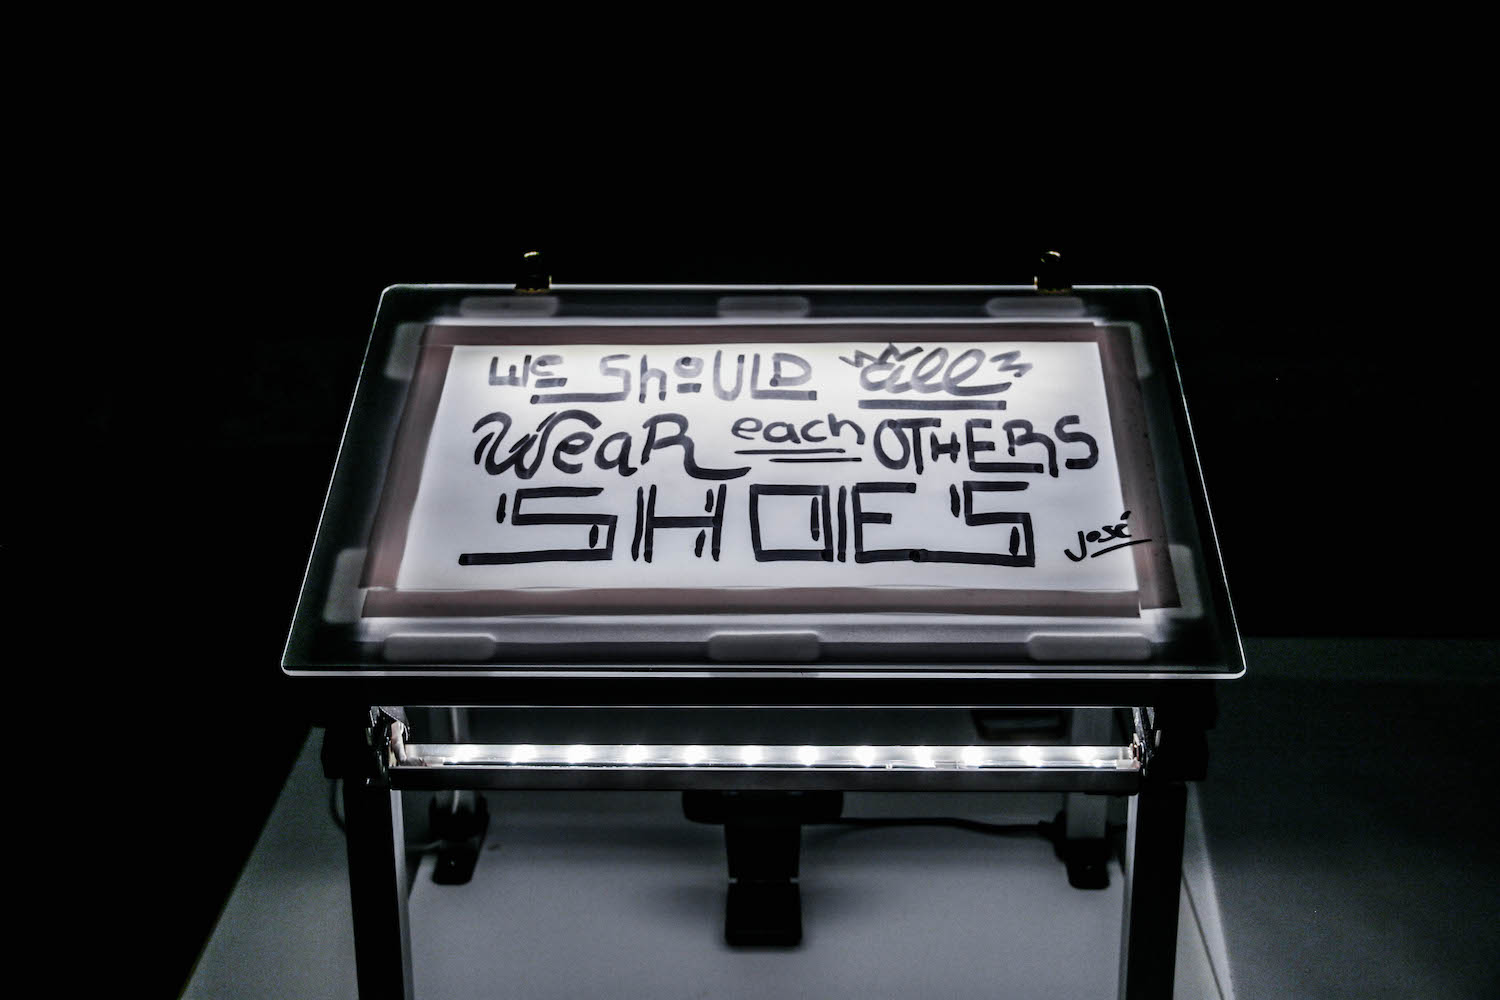 We Should all
Wear each OTHERS
SHOES
José